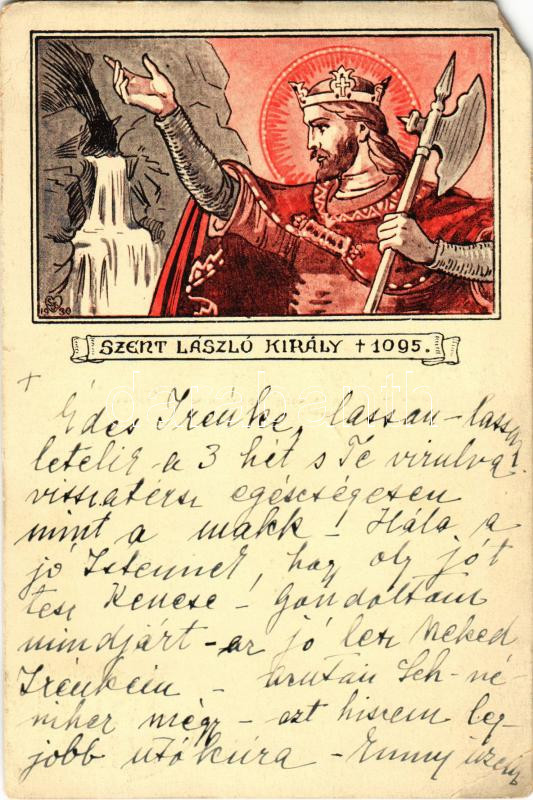 1930
SZENT LÁSZLÓ KIRÁLY † 1095.
+
Édes Irénke, lassan-lassan
letelik a 3 hét s Te virulva
visszatérsz egészségesen
mint a makk – Hála a
jó Istennek, hogy oly jót
tesz Kenese – Gondoltam
mindjárt – az jó lesz Neked
Irénkém – azután Sch-né-
nihez mégy – ezt hiszem leg-
jobb utókúra – Emmy